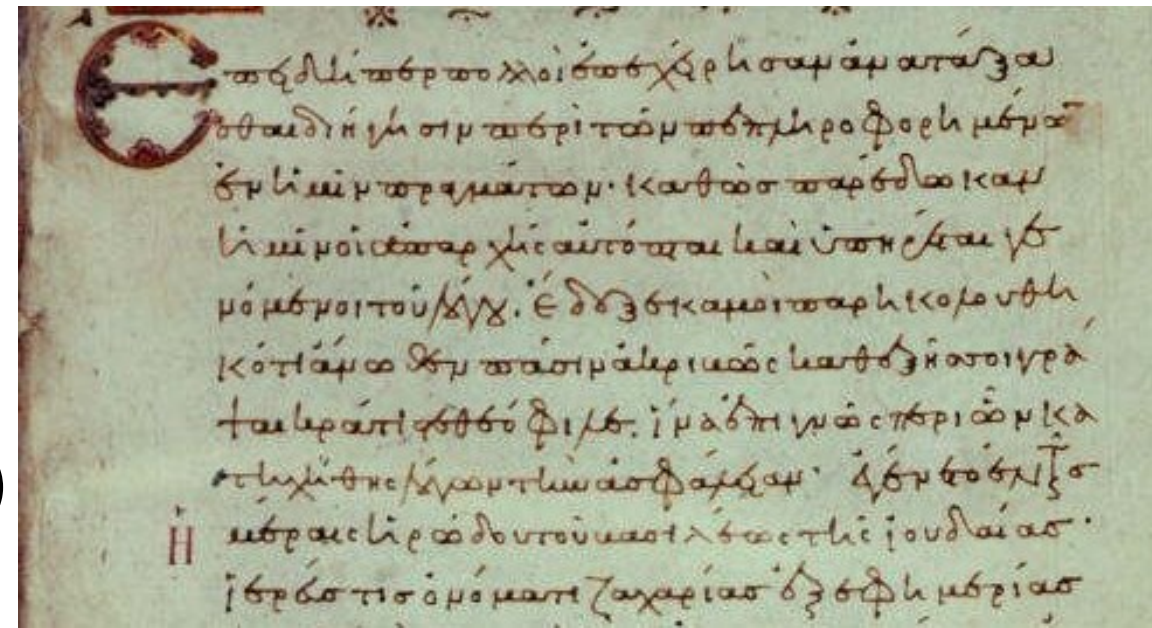 Ἐπειδήπερ πολλοὶ ἐπεχείρησαν ἀνατάξα
σθαι διήγησιν περὶ τῶν πεπληροφορημένω̅
ἐν ἡμῖν πραγμάτων· καθὼς παρέδωκαν
ἡμῖν οἱ ἀπαρχῆς αὐτόπται καὶ ὑπηρέται γε
νόμενοι τοῦ λόγου. Ἔδοξε καμοὶ παρηκολουθη
κότι ἄνωθεν πᾶσιν ἀκριβῶς καθεξῆς σοι γρά
ψαι κράτιστε θεόφιλε. ἵνα ἐπιγνῷς περὶ ὧν κα
τηχήθης λόγων τὴν ἀσφάλειαν· Ἐγένετο ἐν ταῖς
ἡμέραις ἡρώδου τοῦ βασιλέως τῆς ἰουδαίας·
ἱερεύς τις ὀνόματι ζαχαρίας ἐξ ἐφημερίας